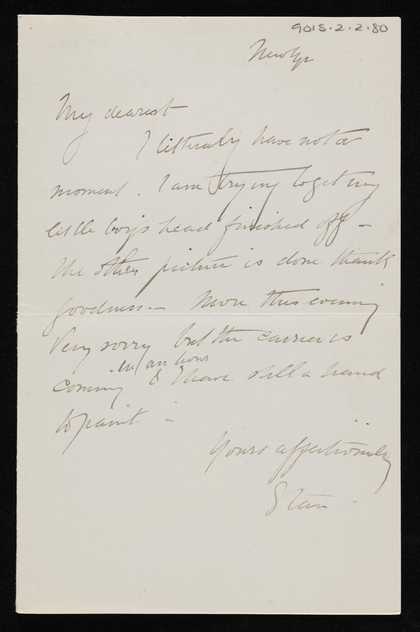 9015-2-2-80
Newlyn
My dearest
I litterally have not a
moment. I am trying to get my
little boy's head finished off –
the other picture is done thank
goodness – More this evening
Very sorry but the carrier is
in an hour
coming & I have still a hand
to paint –
Yours affectionately
Stan